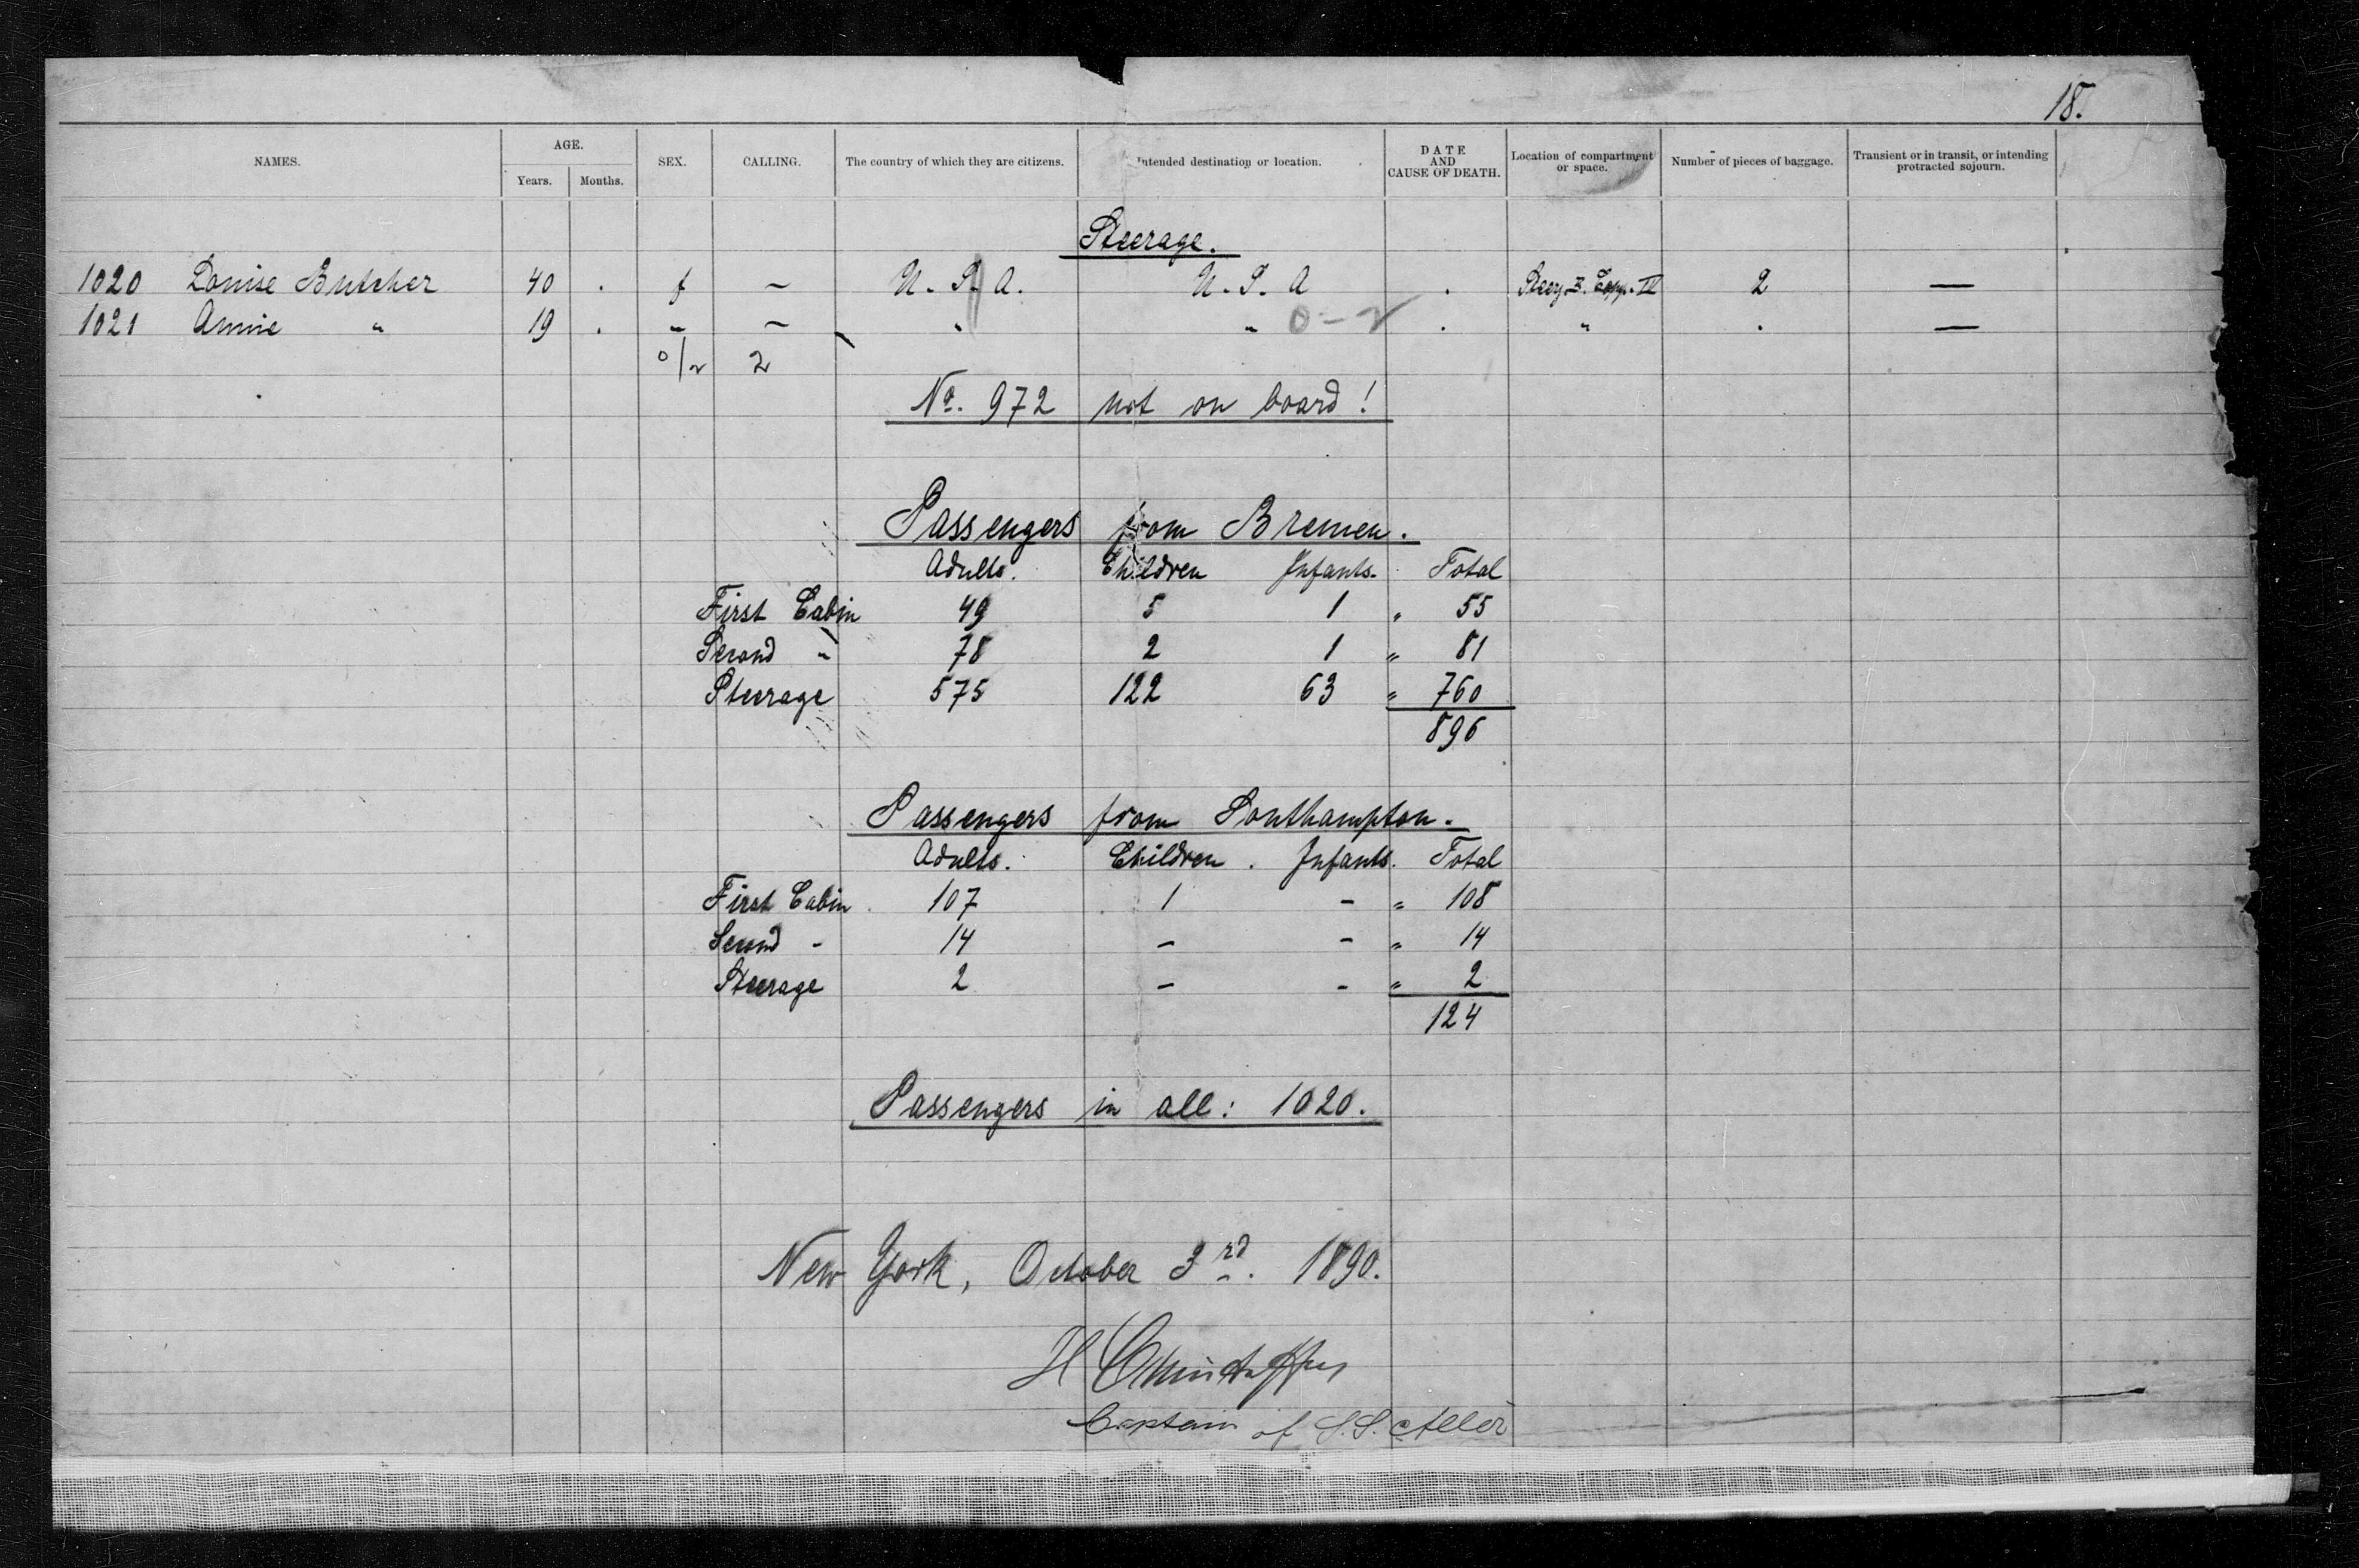 18.
NAMES. AGE. SEX. CALLING. The country of which they are citizens. Intended destination or location. DATE AND CAUSE OF DEATH. Location of compartment or space. Number of pieces of baggage. Transient or in transit, or intending protracted sojourn.
Years. Months.
Steerage.
1020 Louise Butcher 40 . f – U. S. A. U. S. A . II 2 —
1021 Annie " 19 . " – " " 0-2 . " . —
0/2 2
No. 972 not on board!
Passengers from Bremen.
Adults. Children Infants. Total
First Cabin 49 5 1 " 55
Second " 78 2 1 " 81
Steerage 575 122 63 " 760
896
Passengers from Southampton.
Adults. Children. Infants. Total
First Cabin 107 1 - " 108
Second " 14 - - " 14
Steerage 2 - - " 2
124
Passengers in all: 1020.
New York, October 3rd. 1890.
H
Captain of S.S. Aller